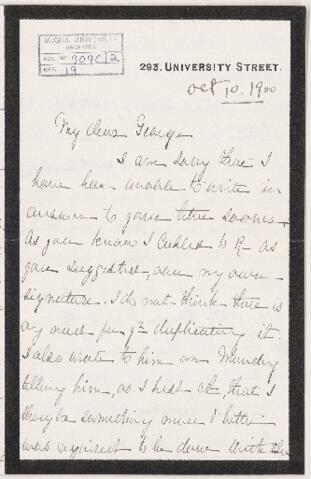 McGILL UNIVERSITY
ARCHIVES
ACC. NO. 909C/2
REF. 19
293, UNIVERSITY STREET.
Oct 10. 1900
My dear George
I am sorry that I
have been unable to write in
answer to your letter sooner.
As you know I cabled to P- as
you suggested, over my own
signature. I do not think there is
any need for yr duplicating it.
I also wrote to him on Monday
telling him, as I had of, that I
thought something more & better
was against to be done with the